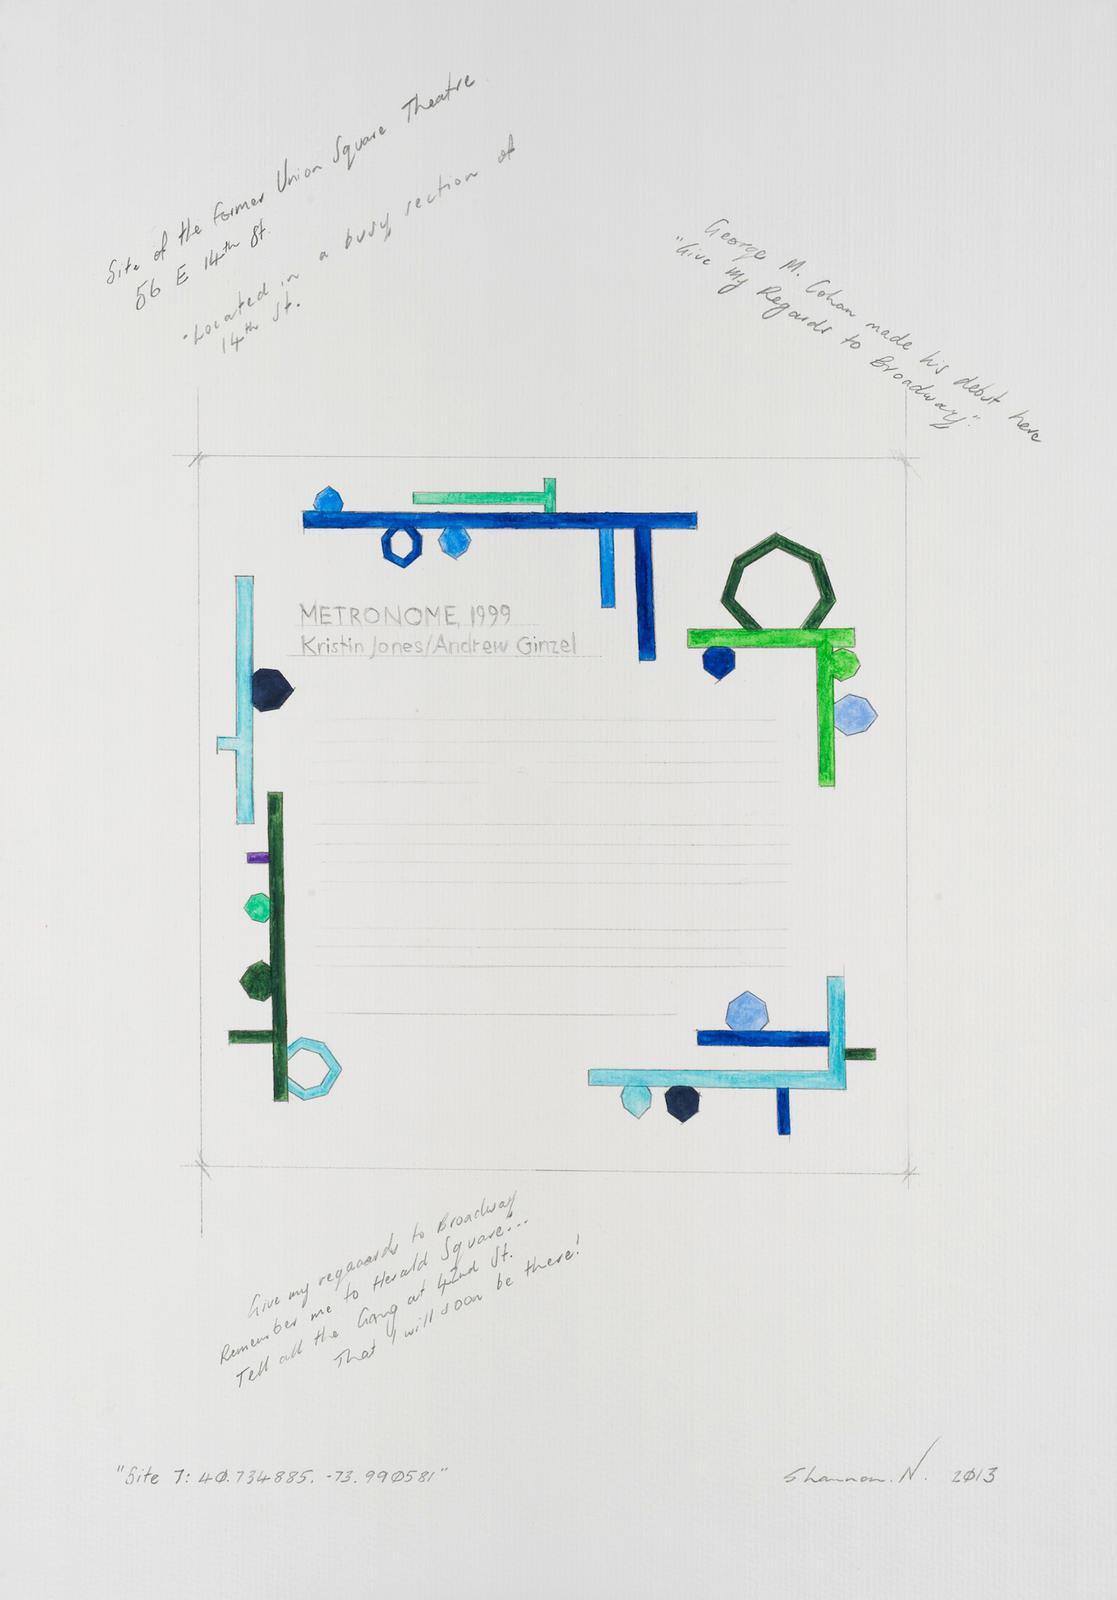 Site of the former Union Square Theatre
56 E 14th St.
"Located in a busy section of
14th St.
George M. Cohan made his debut here
"Give My Regards to Broadway"
METRONOME, 1999
Kristin Jones/Andrew Ginzel
Give my regaaards to Broadway
Remember me to Herald Square...
Tell all the Gang at 42nd St.
That I will soon be there!
"Site 7: 40.734885. -73.990581"
Shannon. N. 2013